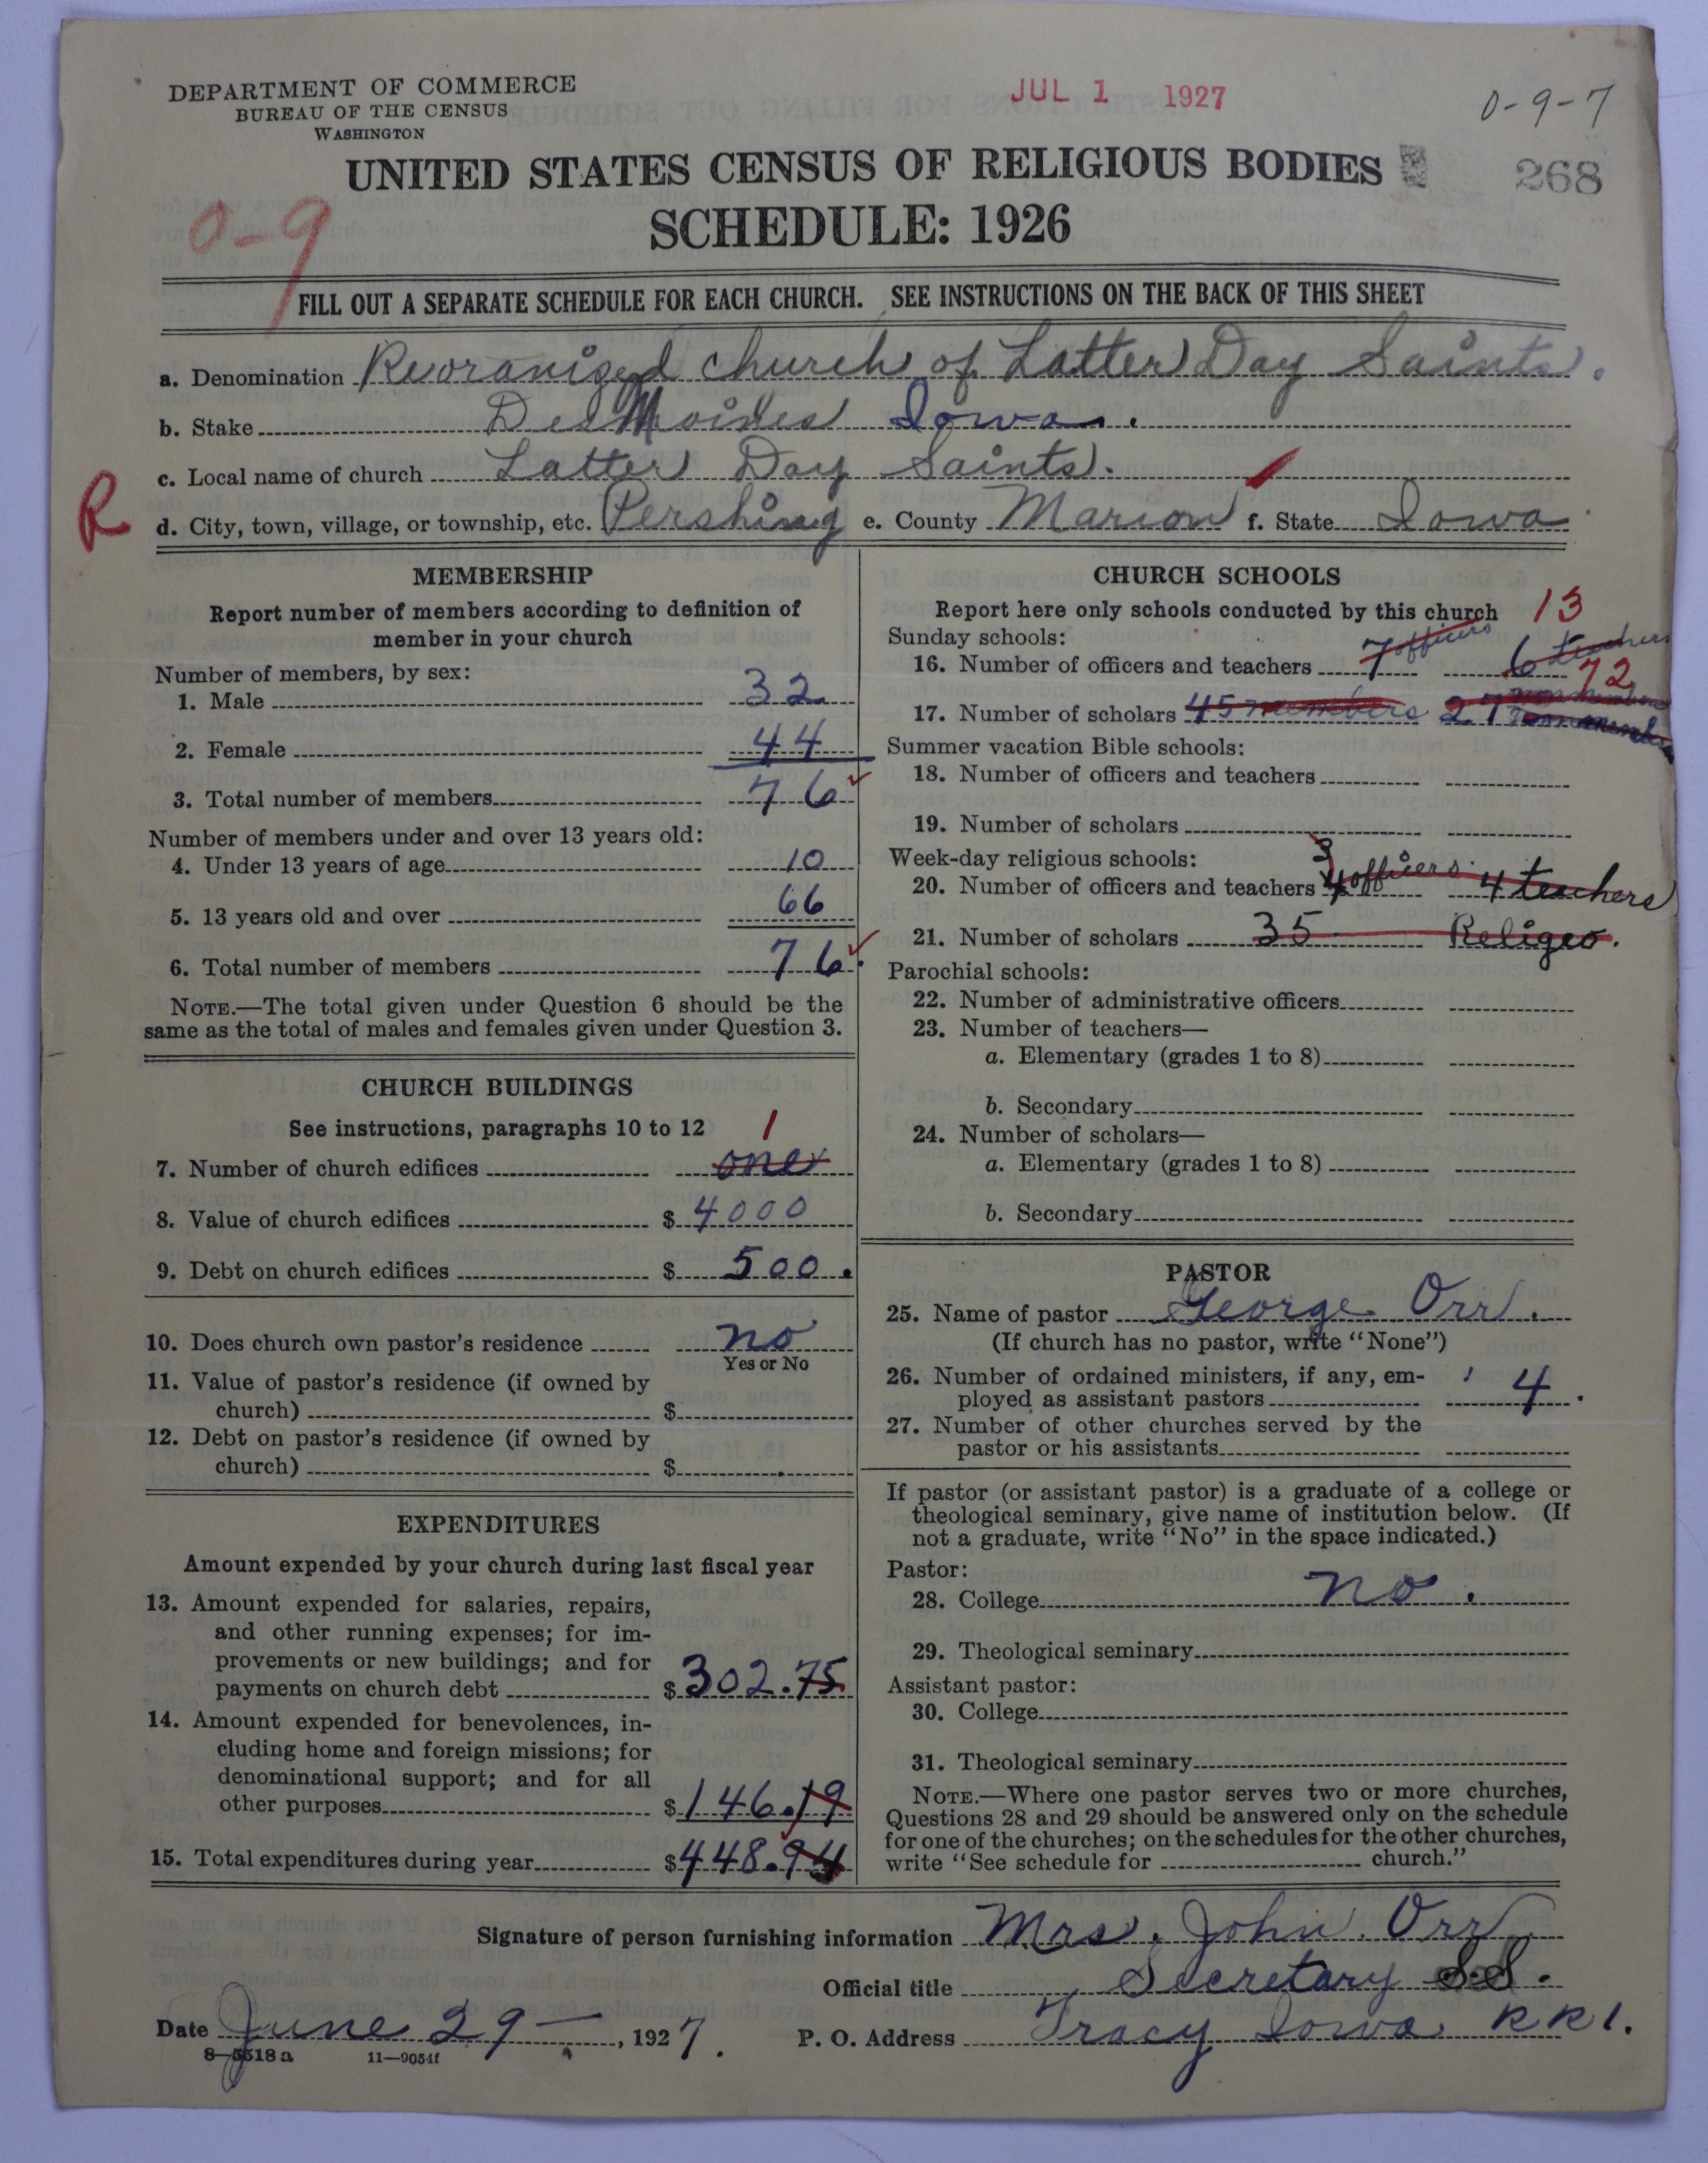 DEPARTMENT OF COMMERCE
BUREAU OF THE CENSUS
WASHINGTON
JUL 1 1927
0-9-7
UNITED STATES CENSUS OF RELIGIOUS BODIES
268
SCHEDULE: 1926
0-9
FILL OUT A SEPARATE SCHEDULE FOR EACH CHURCH. SEE INSTRUCTIONS ON THE BACK OF THIS SHEET
a. Denomination Reoranized church of Latter Day Saints.
b. Stake DesMoines Iowa.
c. Local name of church Latter Day Saints.
R
d. City, town, village, or township, etc. Pershing e. County Marion f. State Iowa
MEMBERSHIP
Report number of members according to definition of
member in your church
Number of members, by sex:
1. Male 32
2. Female 44
3. Total number of members 76
Number of members under and over 13 years old:
4. Under 13 years of age 10
5. 13 years old and over 66
6. Total number of members 76
NOTE.—The total given under Question 6 should be the
same as the total of males and females given under Question 3.
CHURCH BUILDINGS
See instructions, paragraphs 10 to 12
1
7. Number of church edifices one
8. Value of church edifices $ 4000
9. Debt on church edifices $ 500.
10. Does church own pastor's residence no
Yes or No
11. Value of pastor's residence (if owned by
church) $
12. Debt on pastor's residence (if owned by
church) $
EXPENDITURES
Amount expended by your church during last fiscal year
13. Amount expended for salaries, repairs,
and other running expenses; for im-
provements or new buildings; and for
payments on church debt $ 302.75
14. Amount expended for benevolences, in-
cluding home and foreign missions; for
denominational support; and for all
other purposes $ 146.19
15. Total expenditures during year $ 448.94
CHURCH SCHOOLS
Report here only schools conducted by this church 13
Sunday schools:
16. Number of officers and teachers 7 officers 6 teachers
72
17. Number of scholars 45 members 27
Summer vacation Bible schools:
18. Number of officers and teachers
19. Number of scholars
Week-day religious schools:
3
20. Number of officers and teachers 4 officers 4 teachers
21. Number of scholars 35 Religeo.
Parochial schools:
22. Number of administrative officers
23. Number of teachers—
a. Elementary (grades 1 to 8)
b. Secondary
24. Number of scholars—
a. Elementary (grades 1 to 8)
b. Secondary
PASTOR
25. Name of pastor George Orr.
(If church has no pastor, write "None")
26. Number of ordained ministers, if any, em-
ployed as assistant pastors 4.
27. Number of other churches served by the
pastor or his assistants
If pastor (or assistant pastor) is a graduate of a college or
theological seminary, give name of institution below. (If
not a graduate, write "No" in the space indicated.)
Pastor:
28. College no.
29. Theological seminary
Assistant pastor:
30. College
31. Theological seminary
NOTE.—Where one pastor serves two or more churches,
Questions 28 and 29 should be answered only on the schedule
for one of the churches; on the schedules for the other churches,
write "See schedule for church."
Signature of person furnishing information Mrs. John Orr
Official title Secretary S.S.
Date June 29 — , 1927. P. O. Address Tracy Iowa RR1.
8—5518a 11—9054f